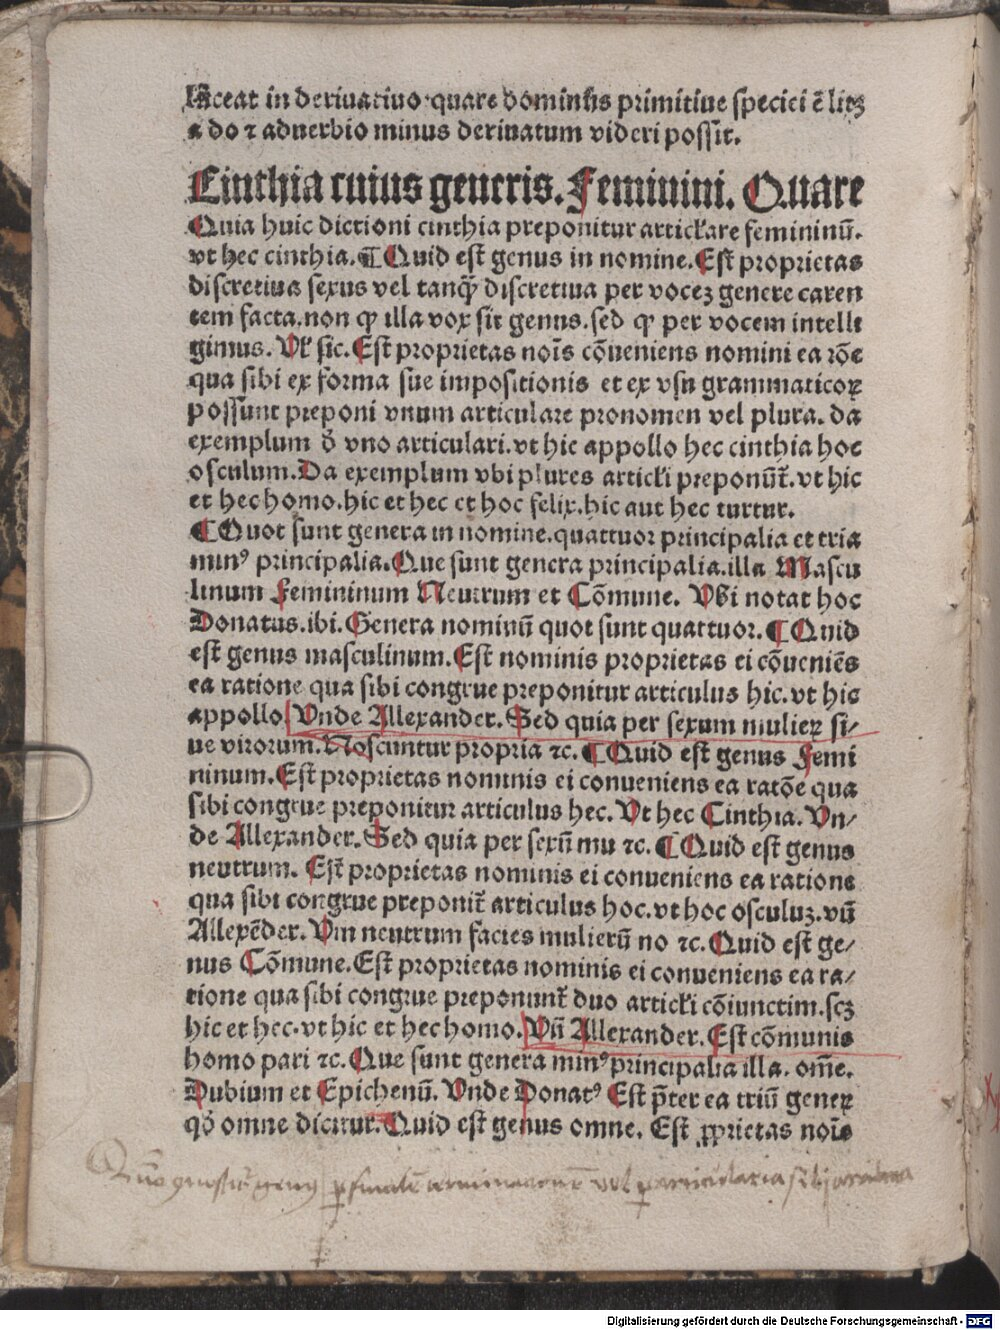 laceat in deriuatiuo quare dominus primitiue speciei ē licꝫ
a do ⁊ aduerbio minus deriuatum videri possit.
Cinthia cuius generis. Feminini. Quare
Quia huic dictioni cinthia preponitur articłare femininū.
vt hec cinthia. ¶ Quid est genus in nomine. Est proprietas
discretiua sexus vel tanꝙ̄ discretiua per vocez genere caren
tem facta. non ꝙ illa vox sit genus. sed ꝙ per vocem intelli
gimus. Vł sic. Est proprietas nōis cōueniens nomini ea rōe
qua sibi ex forma sue impositionis et ex vsu grammaticoꝝ
possunt preponi vnum articulare pronomen vel plura. da
exemplum ð vno articulari. vt hic appollo hec cinthia hoc
osculum. Da exemplum vbi plures articłi preponūt̄. vt hic
et hec homo. hic et hec et hoc felix. hic aut hec turtur.
¶ Quot sunt genera in nomine. quattuor principalia et tria
minꝰ principalia. Que sunt genera principalia. illa Mascu
linum Femininum Neutrum et Cōmune. Vbi notat hoc
Donatus. ibi. Genera nominū quot sunt quattuor. ¶ Quid
est genus masculinum. Est nominis proprietas ei cōueniēs
ea ratione qua sibi congrue preponitur articulus hic. vt hic
appollo. Vnde Allexander. Sed quia per sexum mulieꝝ si/
ue virorum. Noscuntur propria ⁊c. ¶ Quid est genus Femi
ninum. Est proprietas nominis ei conueniens ea ratōe qua
sibi congrue preponitur articulus hec. Vt hec Cinthia. Vn/
de Allexander. Sed quia per sexū mu ⁊c. ¶ Quid est genus
neutrum. Est proprietas nominis ei conueniens ea ratione
qua sibi congrue preponit̄ articulus hoc. vt hoc osculuꝫ. vñ
Allexēder. Vim neutrum facies mulierū no ⁊c. Quid est ge/
nus Cōmune. Est proprietas nominis ei conueniens ea ra/
tione qua sibi congrue preponunt̄ duo articłi cōiunctim. scꝫ
hic et hec. vt hic et hec homo. Vñ Allexander. Est cōmunis
homo pari ⁊c. Que sunt genera minꝰ principalia illa. om̄e.
Dubium et Epichenū. Vnde Donatꝰ Est p̄ter ea triū geneꝝ
qð omne dicitur. Quid est genus omne. Est ꝓprietas nōis